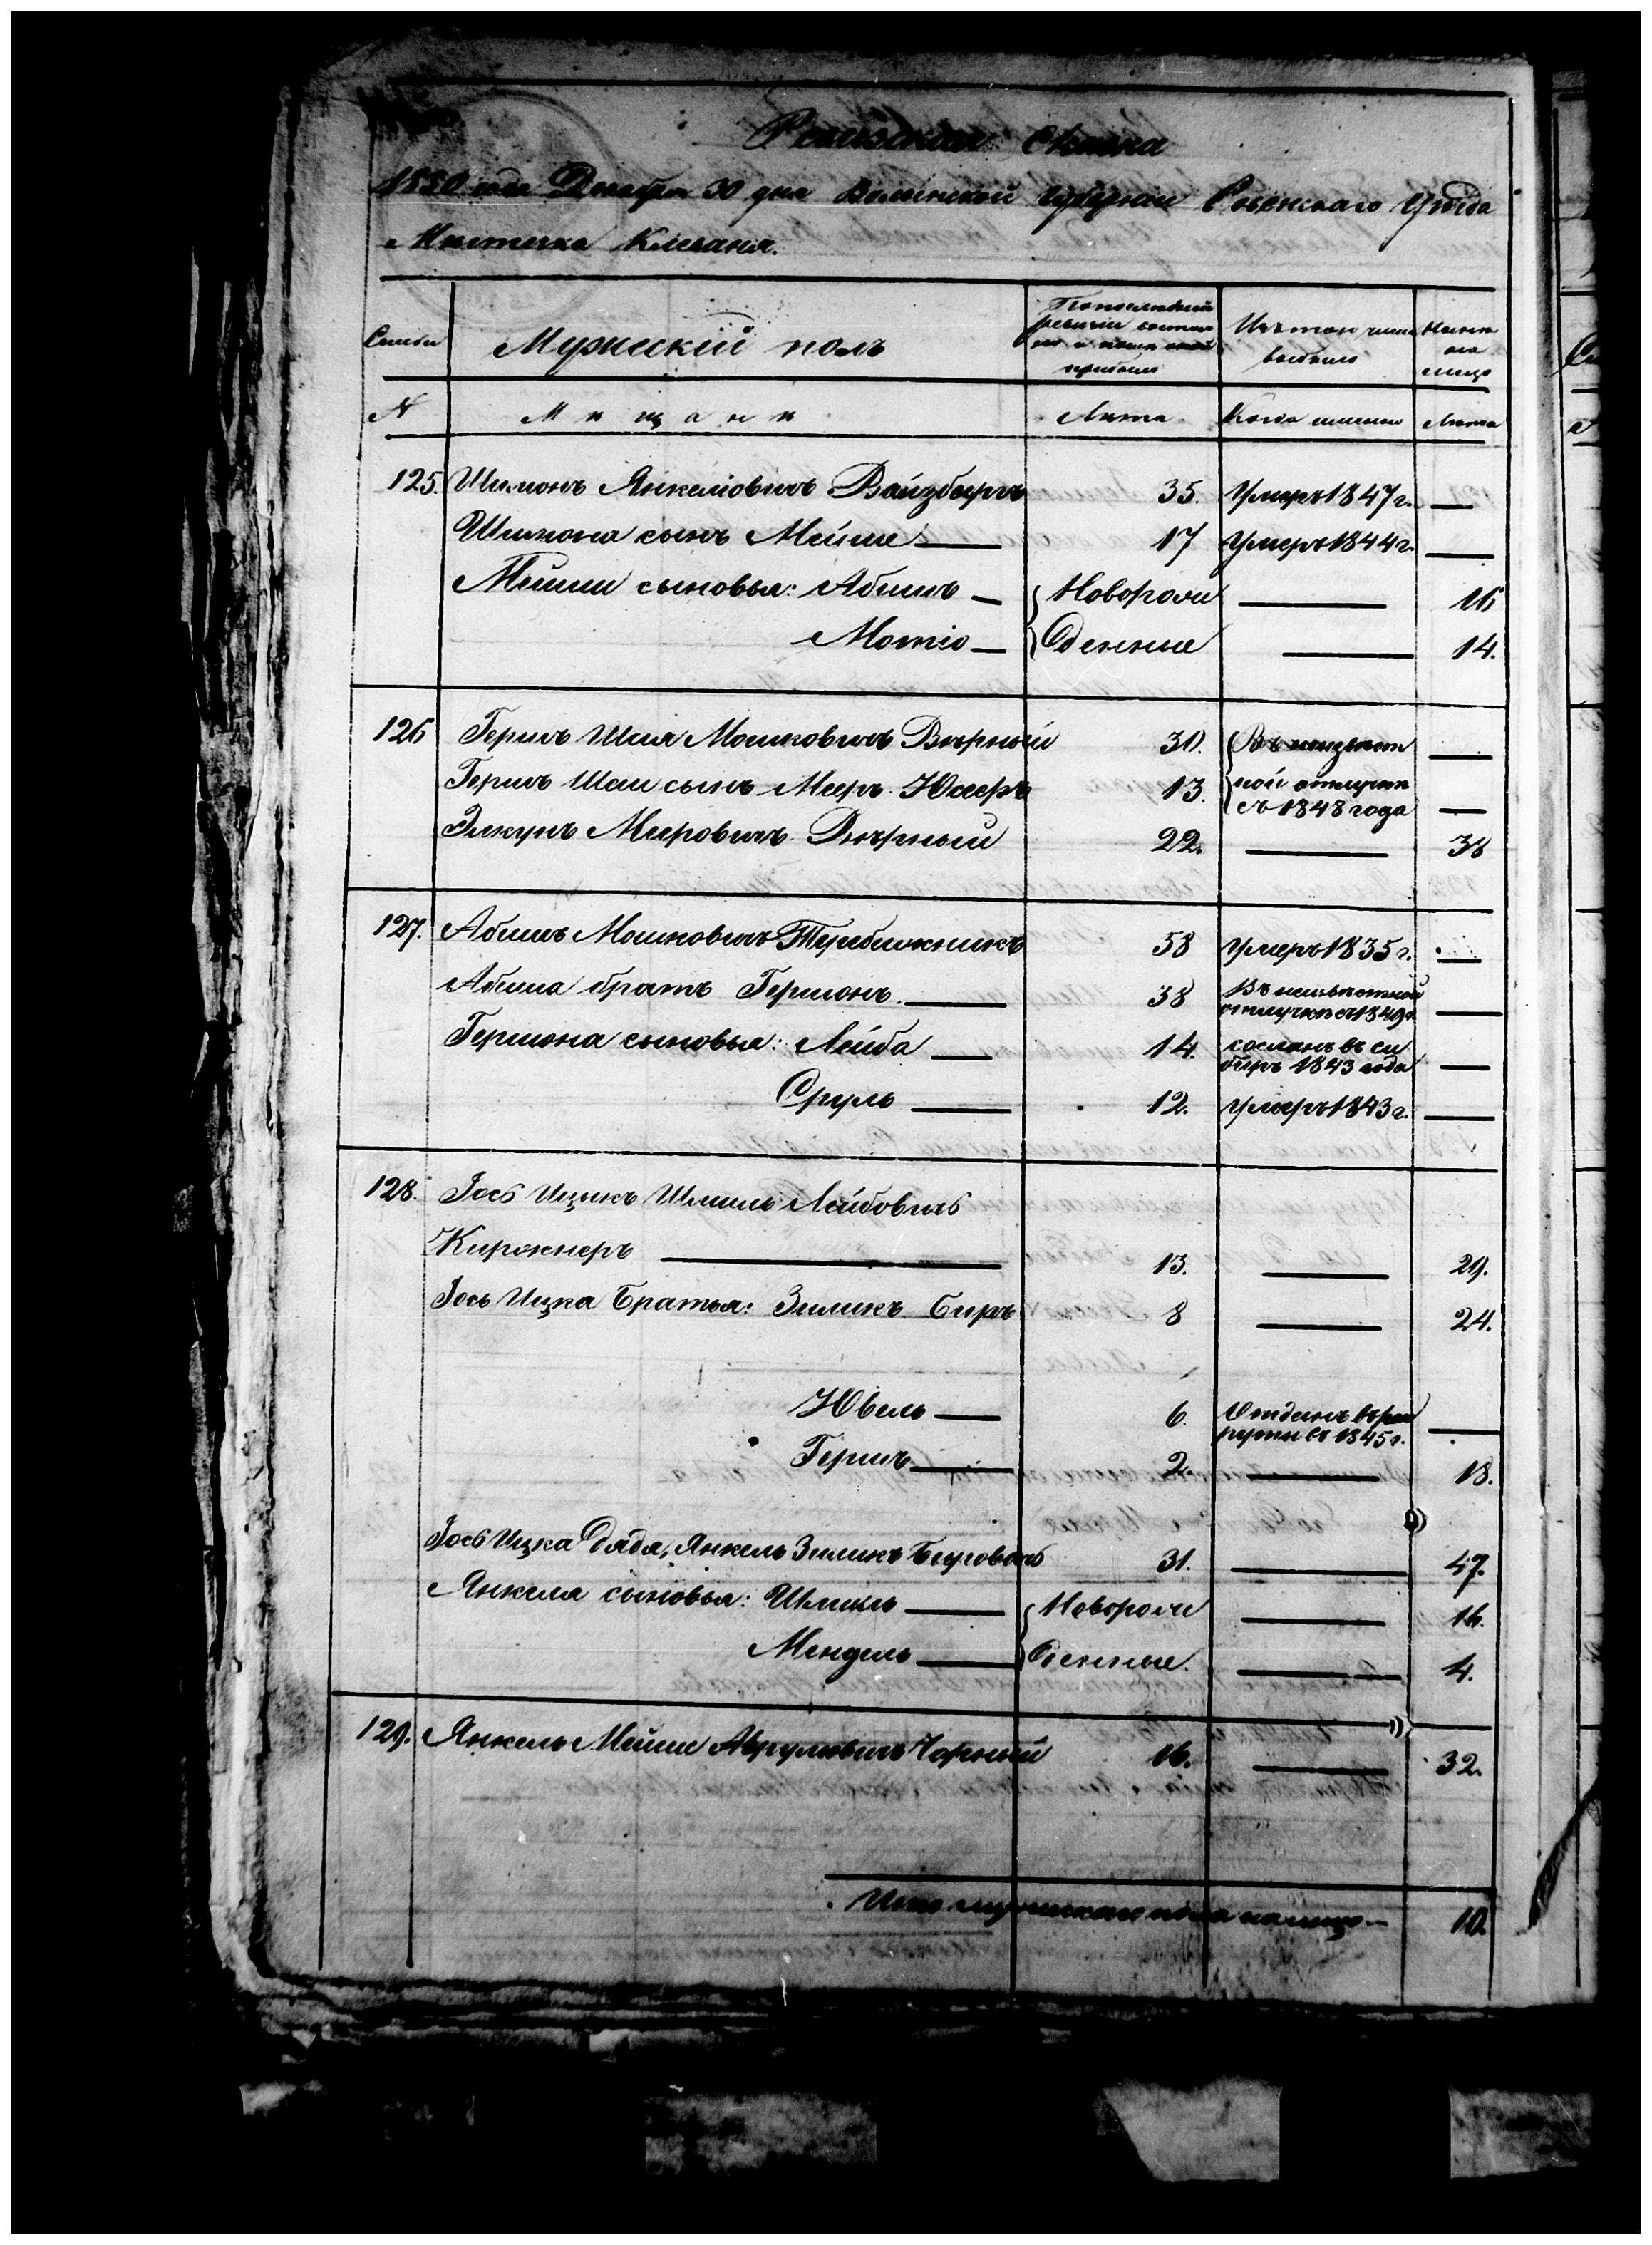 Ревизская сказка
1850 года Декабря 30 дня Волынской Губернии Ровенскаго Уѣзда
Мѣстечка Клеваня.
Семьи Мужескій полъ По послѣдней ревизіи состояло и послѣ оной прибыло Изъ того числа выбыло Нынѣ на лицо
N Мѣщане Лѣта Когда именно Лѣта
125. Шимонъ Янкеліовичъ Вайзбергъ 35. Умеръ 1847 г. —
Шимона сынъ Мейше — 17 Умеръ 1844 г. —
Мейши сыновья: Абишъ — Новорож — 16
Мотіо — Денные — 14.
126 Гершъ Шая Мошковичъ Вѣрный 30. Въ неизвѣст —
Гершъ Шаи сынъ Мееръ Юкеръ 13. ной отлучкѣ съ 1848 года —
Элкунъ Мееровичъ Вѣрный 22. — 38
127. Абишъ Мошковичъ Теребижникъ 58 Умеръ 1835 г. —
Абиша братъ Гершонъ — 38 Въ неизвѣстной отлучкѣ съ 1849 г. —
Гершона сыновья: Лейба — 14. сосланъ въ си бирь 1843 года —
Сруль — 12. Умеръ 1843 г. —
128. Іось Ицикъ Шмиль Лейбовичъ
Киржнеръ — 13. — 29.
Іось Ицка Братья: Зиликъ Беръ 8 — 24.
Ювель — 6. Отданъ въ рек руты въ 1845 г. —
Гершъ — 2. — 18.
Іось Ицка Дядя, Янкель Зиликъ Беровичъ 31. — 47.
Янкеля сыновья: Шмиль — Новорож — 16.
Мендель — Денные. — 4.
129. Янкель Мейше Аврумовичъ Чорный 16. — 32.
Итого мужескаго пола на лицо — 10.